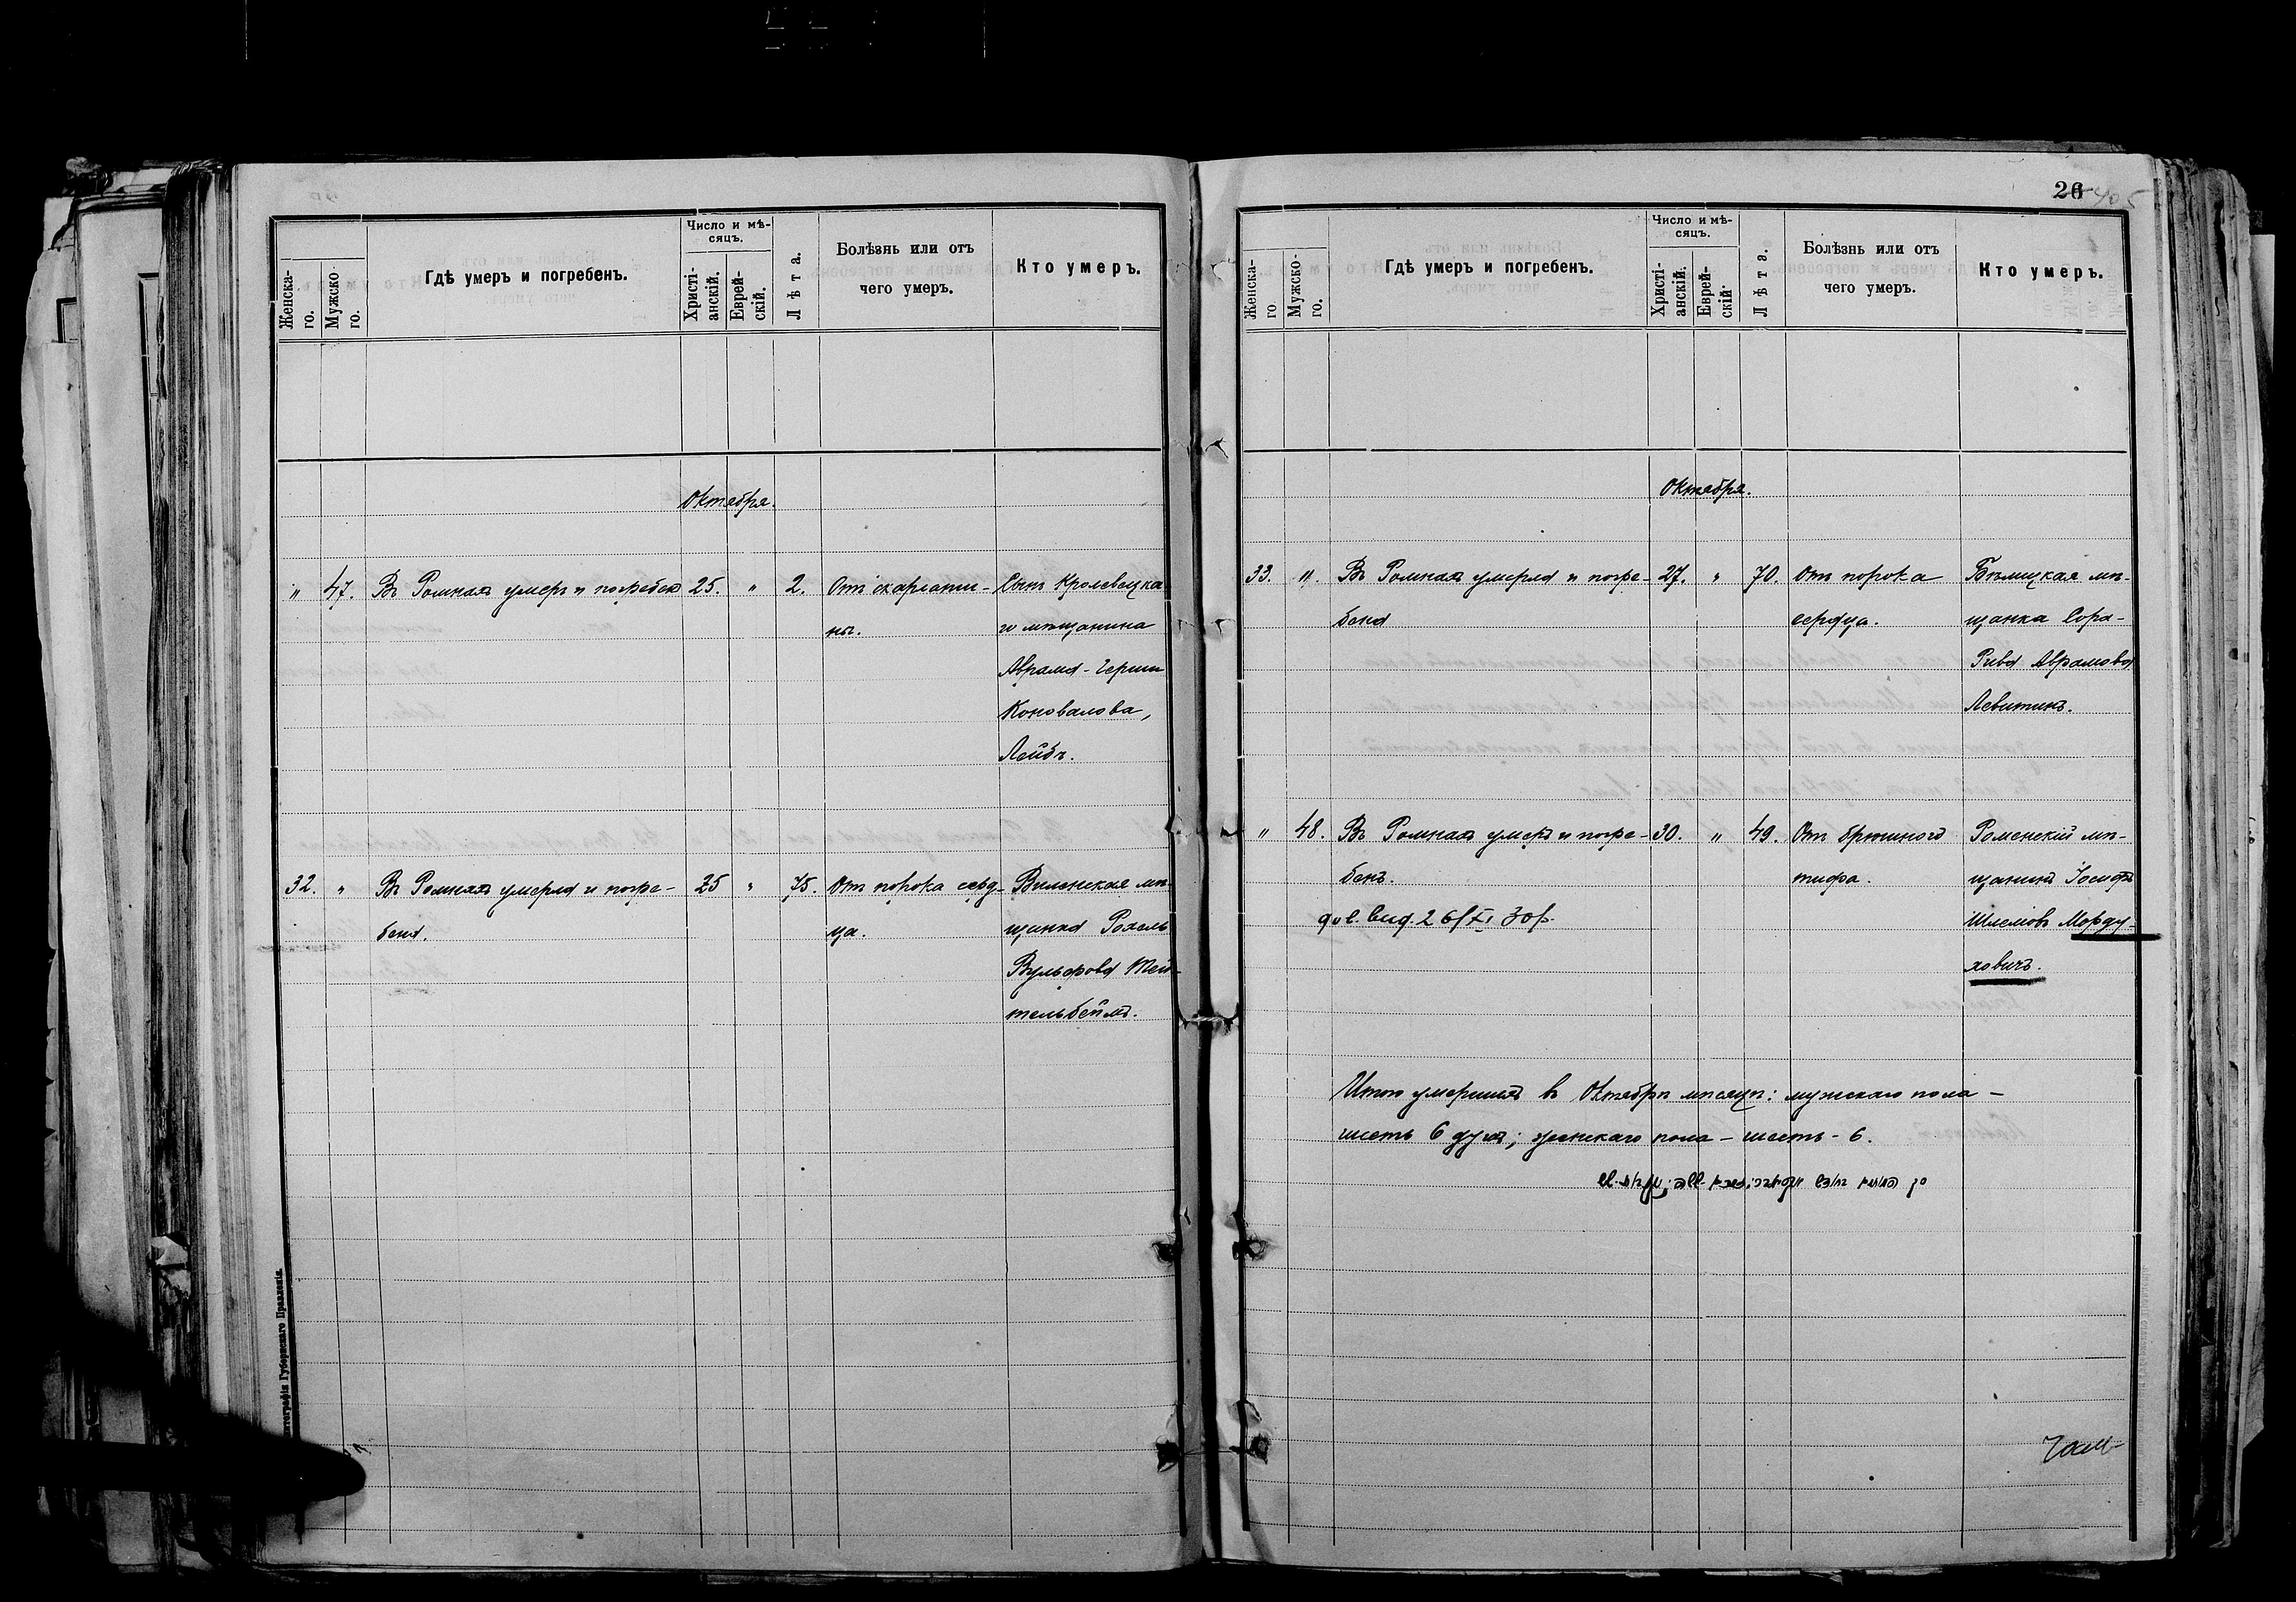 Женска-
го.
Мужско-
го.
Гдѣ умеръ и погребенъ.
Число и мѣ-
сяцъ.
Христі-
анскій.
Еврей-
скій.
Лѣта.
Болѣзнь или отъ
чего умеръ.
Кто умеръ.
Октября.
" 47. Въ Ромнахъ умеръ и погребенъ 25. " 2. Отъ скарлати- Сынъ Кролевецка
ны. го мѣщанина
Аврама-Герши
Коновалова,
Лейбъ.
32. " Въ Ромнахъ умерла и погре- 25 " 75. Отъ порока серд- Виленская мѣ-
бена. ца. щанка Рохель
Вульфова Тей-
тельбеймъ.
Типографія Губернскаго Правленія.
26 405
Женска-
го
Мужско-
го.
Гдѣ умеръ и погребенъ.
Число и мѣ-
сяцъ.
Христі-
анскій.
Еврей-
скій.
Лѣта.
Болѣзнь или отъ
чего умеръ.
Кто умеръ.
Октября.
33. " Въ Ромнахъ умерла и погре- 27. " 70. Отъ порока Бѣлицкая мѣ-
бена сердца. щанка Сора-
Рива Аврамова
Левитинъ.
" 48. Въ Ромнахъ умеръ и погре- 30. " 49. Отъ брюшного Роменскій мѣ-
бенъ. тифа. щанинъ Іосифъ
26/XI 30 Шлемовъ Морду-
ховичъ.
Итого умершихъ въ Октябрѣ мѣсяцѣ: мужскаго пола –
шесть 6 душъ; женскаго пола – шесть - 6.